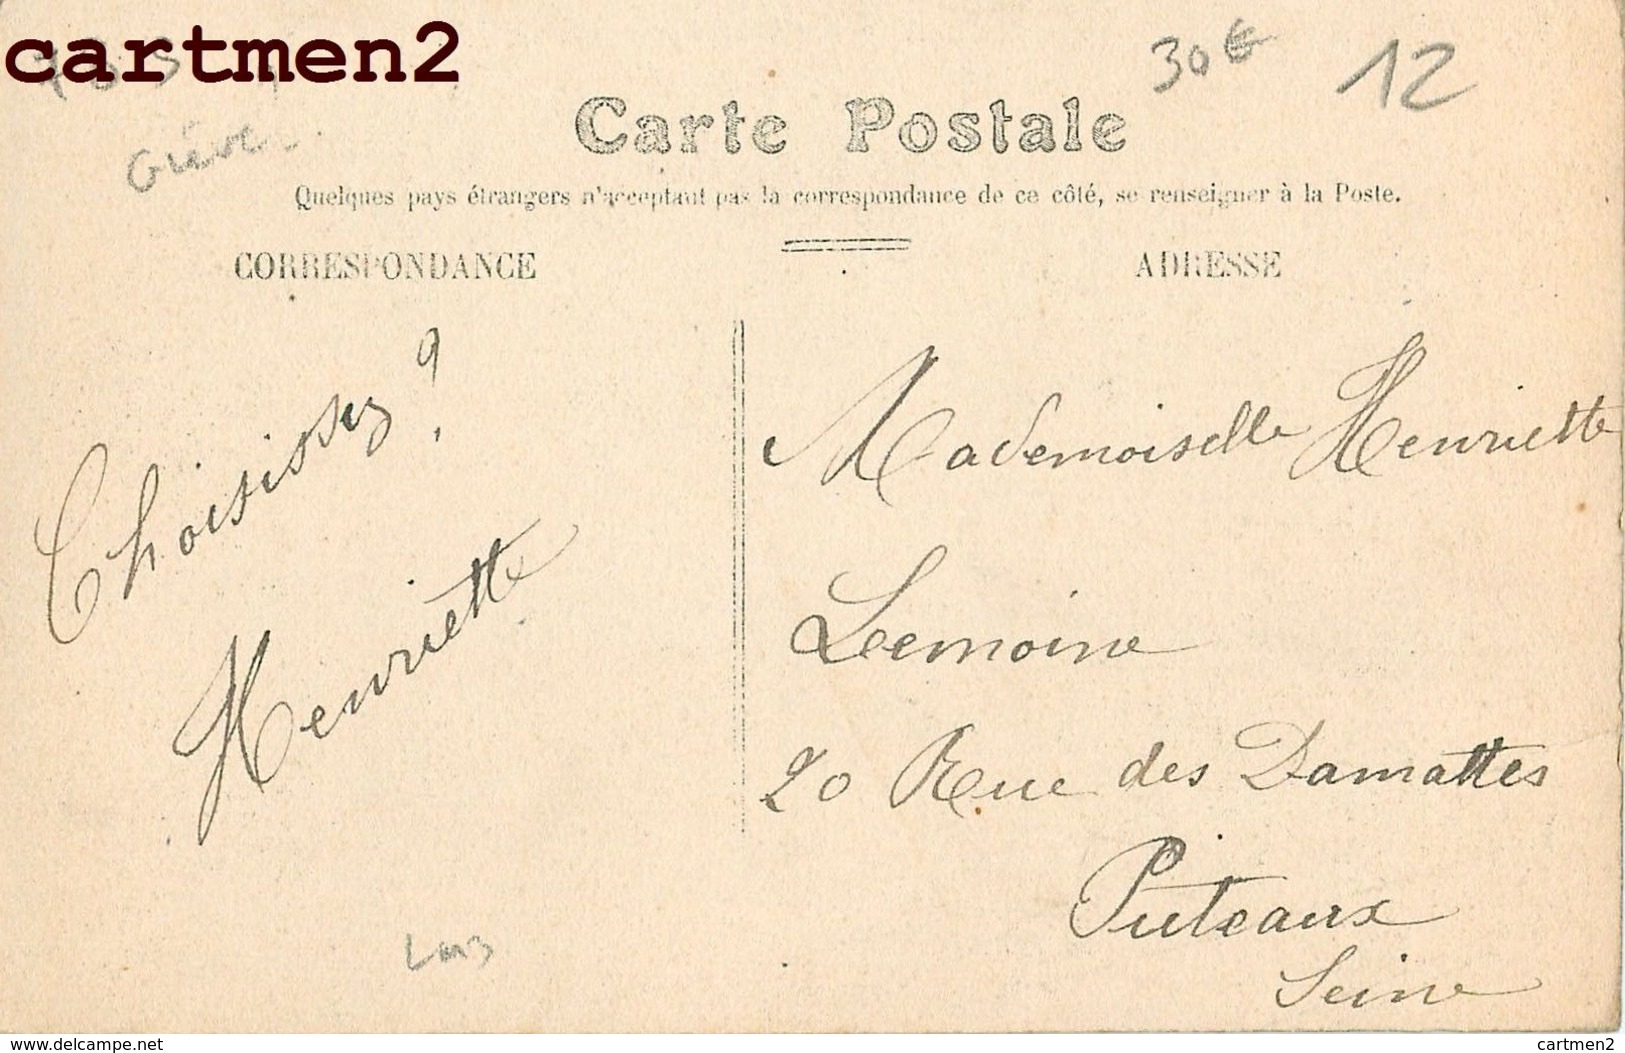 cartmen2
30€ 12
Grève
Carte Postale
Quelques pays étrangers n'acceptant pas la correspondance de ce côté, se renseigner à la Poste.
CORRESPONDANCE
ADRESSE
Choisissez ?
Henriette
Mademoiselle Henriette
Leemoine
20 Rue des Damattes
Puteaux
Seine
www.delcampe.net
cartmen2